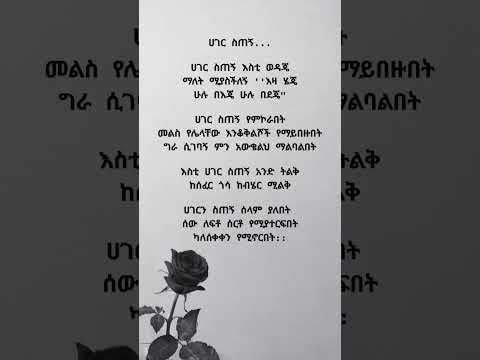 ሀገር ስጠኝ...
ሀገር ስጠኝ እስቲ ወዳጄ
ማለት ሚያስችለኝ ''እዛ ሄጄ
ሁሉ በእጄ ሁሉ በደጄ"
ሀገር ስጠኝ የምኮራበት
መልስ የሌላቸው እንቆቅልሾች የማይበዙበት
ግራ ሲገባኝ ምን አውቄልህ ማልባልበት
እስቲ ሀገር ስጠኝ አንድ ትልቅ
ከሰፈር ጎሳ ከብሄር ሚልቅ
ሀገርን ስጠኝ ሰላም ያለበት
ሰው ለፍቶ ሰርቶ የሚያተርፍበት
ካለሰቀቀን የሚኖርበት::